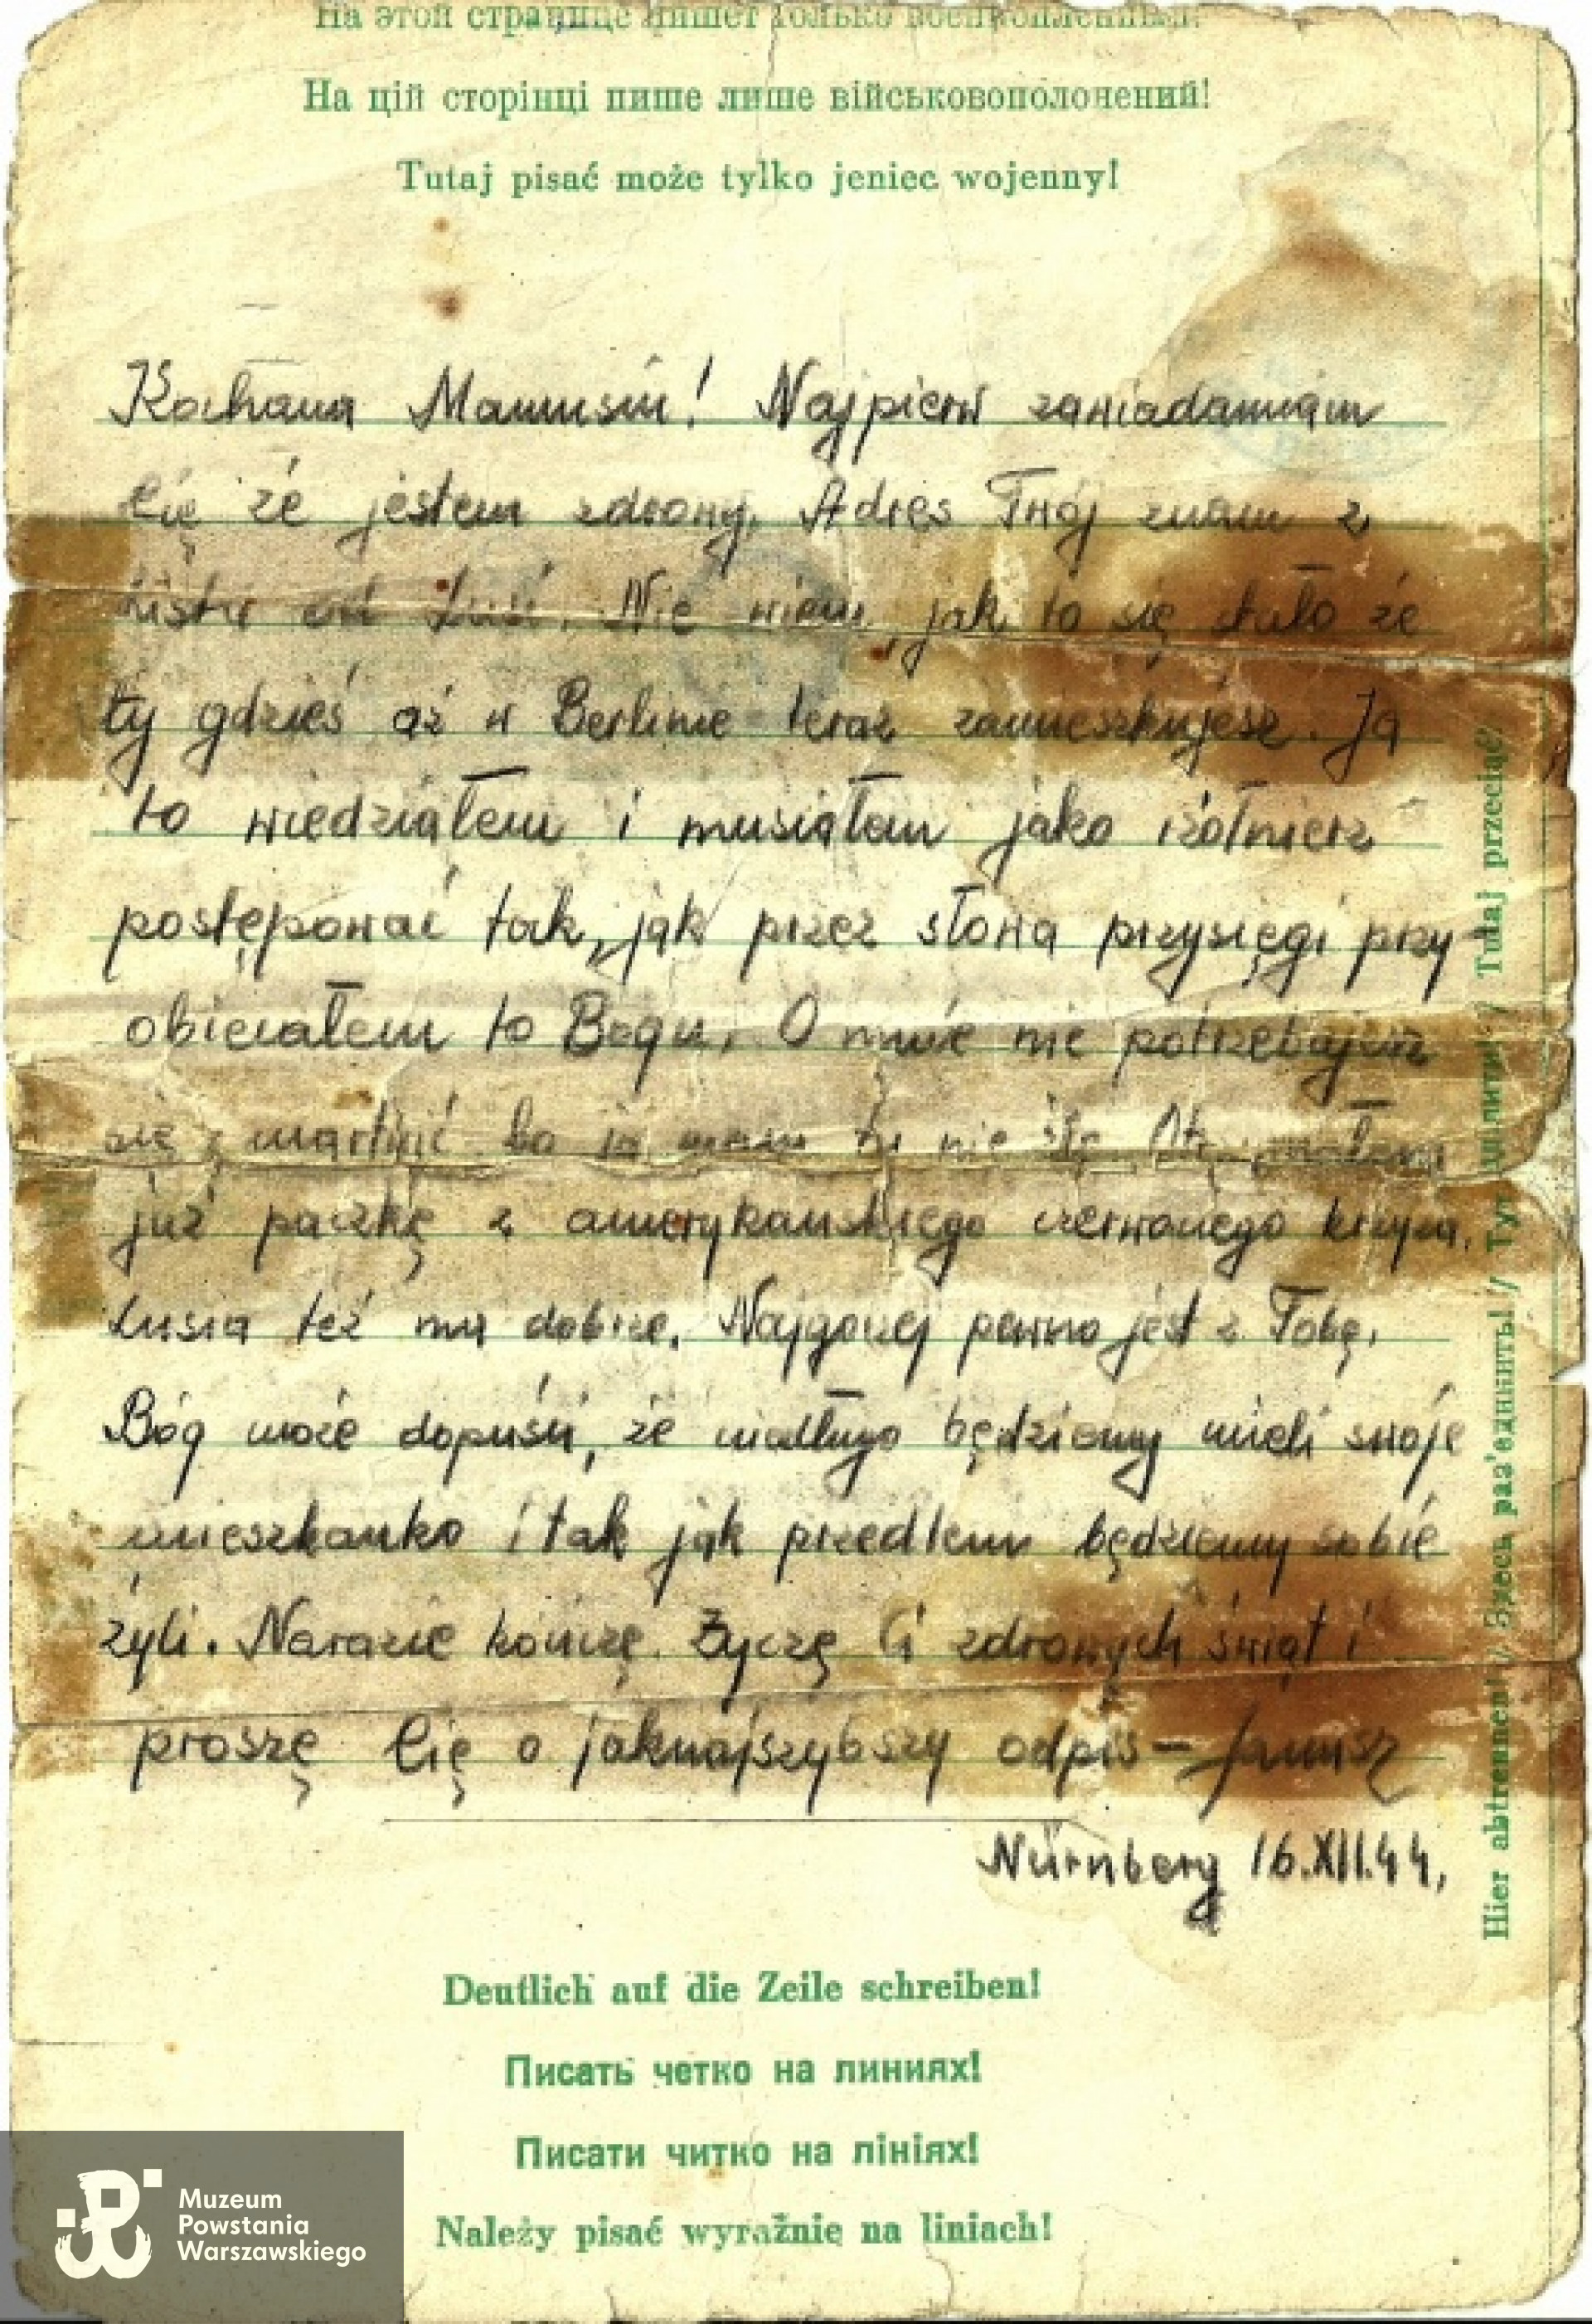 На этой странице пишет только военнопленный!
На цій сторінці пише лише військовополонений!
Tutaj pisać może tylko jeniec wojenny!
Kochana Mamusiu! Najpierw zawiadamiam
Cię że jestem zdrowy. Adres Twój znam z
listu od Lusi. Nie wiem, jak to się stało że
ty gdzieś aż w Berlinie teraz zamieszkujesz. Ja
to wiedziałem i musiałem jako żółnierz
postępować tak, jak przez słowa przysięgi przy-
obiecałem to Bogu. O mnie nie potrzebujesz
się zmartwić bo ja mam tu nie źle. Otrzymałem
już paczkę z amerykańskiego czerwonego krzyża.
Lusia też ma dobrze. Najgorzej pewno jest z Tobą.
Bóg może dopuści, że niedługo będziemy mieli swoje
mieszkanko i tak jak przedtem będziemy sobie
żyli. Narazie kończę. Życzę Ci zdrowych świąt i
proszę Cię o jaknajszybszy odpis – Janusz
Nürnberg 16.XII.44.
Deutlich auf die Zeile schreiben!
Писать четко на линиях!
Писати читко на лініях!
Należy pisać wyraźnie na liniach!
Hier abtrennen! // Здесь раз'единить! // Тут ділити! // Tutaj przeciąć!
Muzeum
Powstania
Warszawskiego